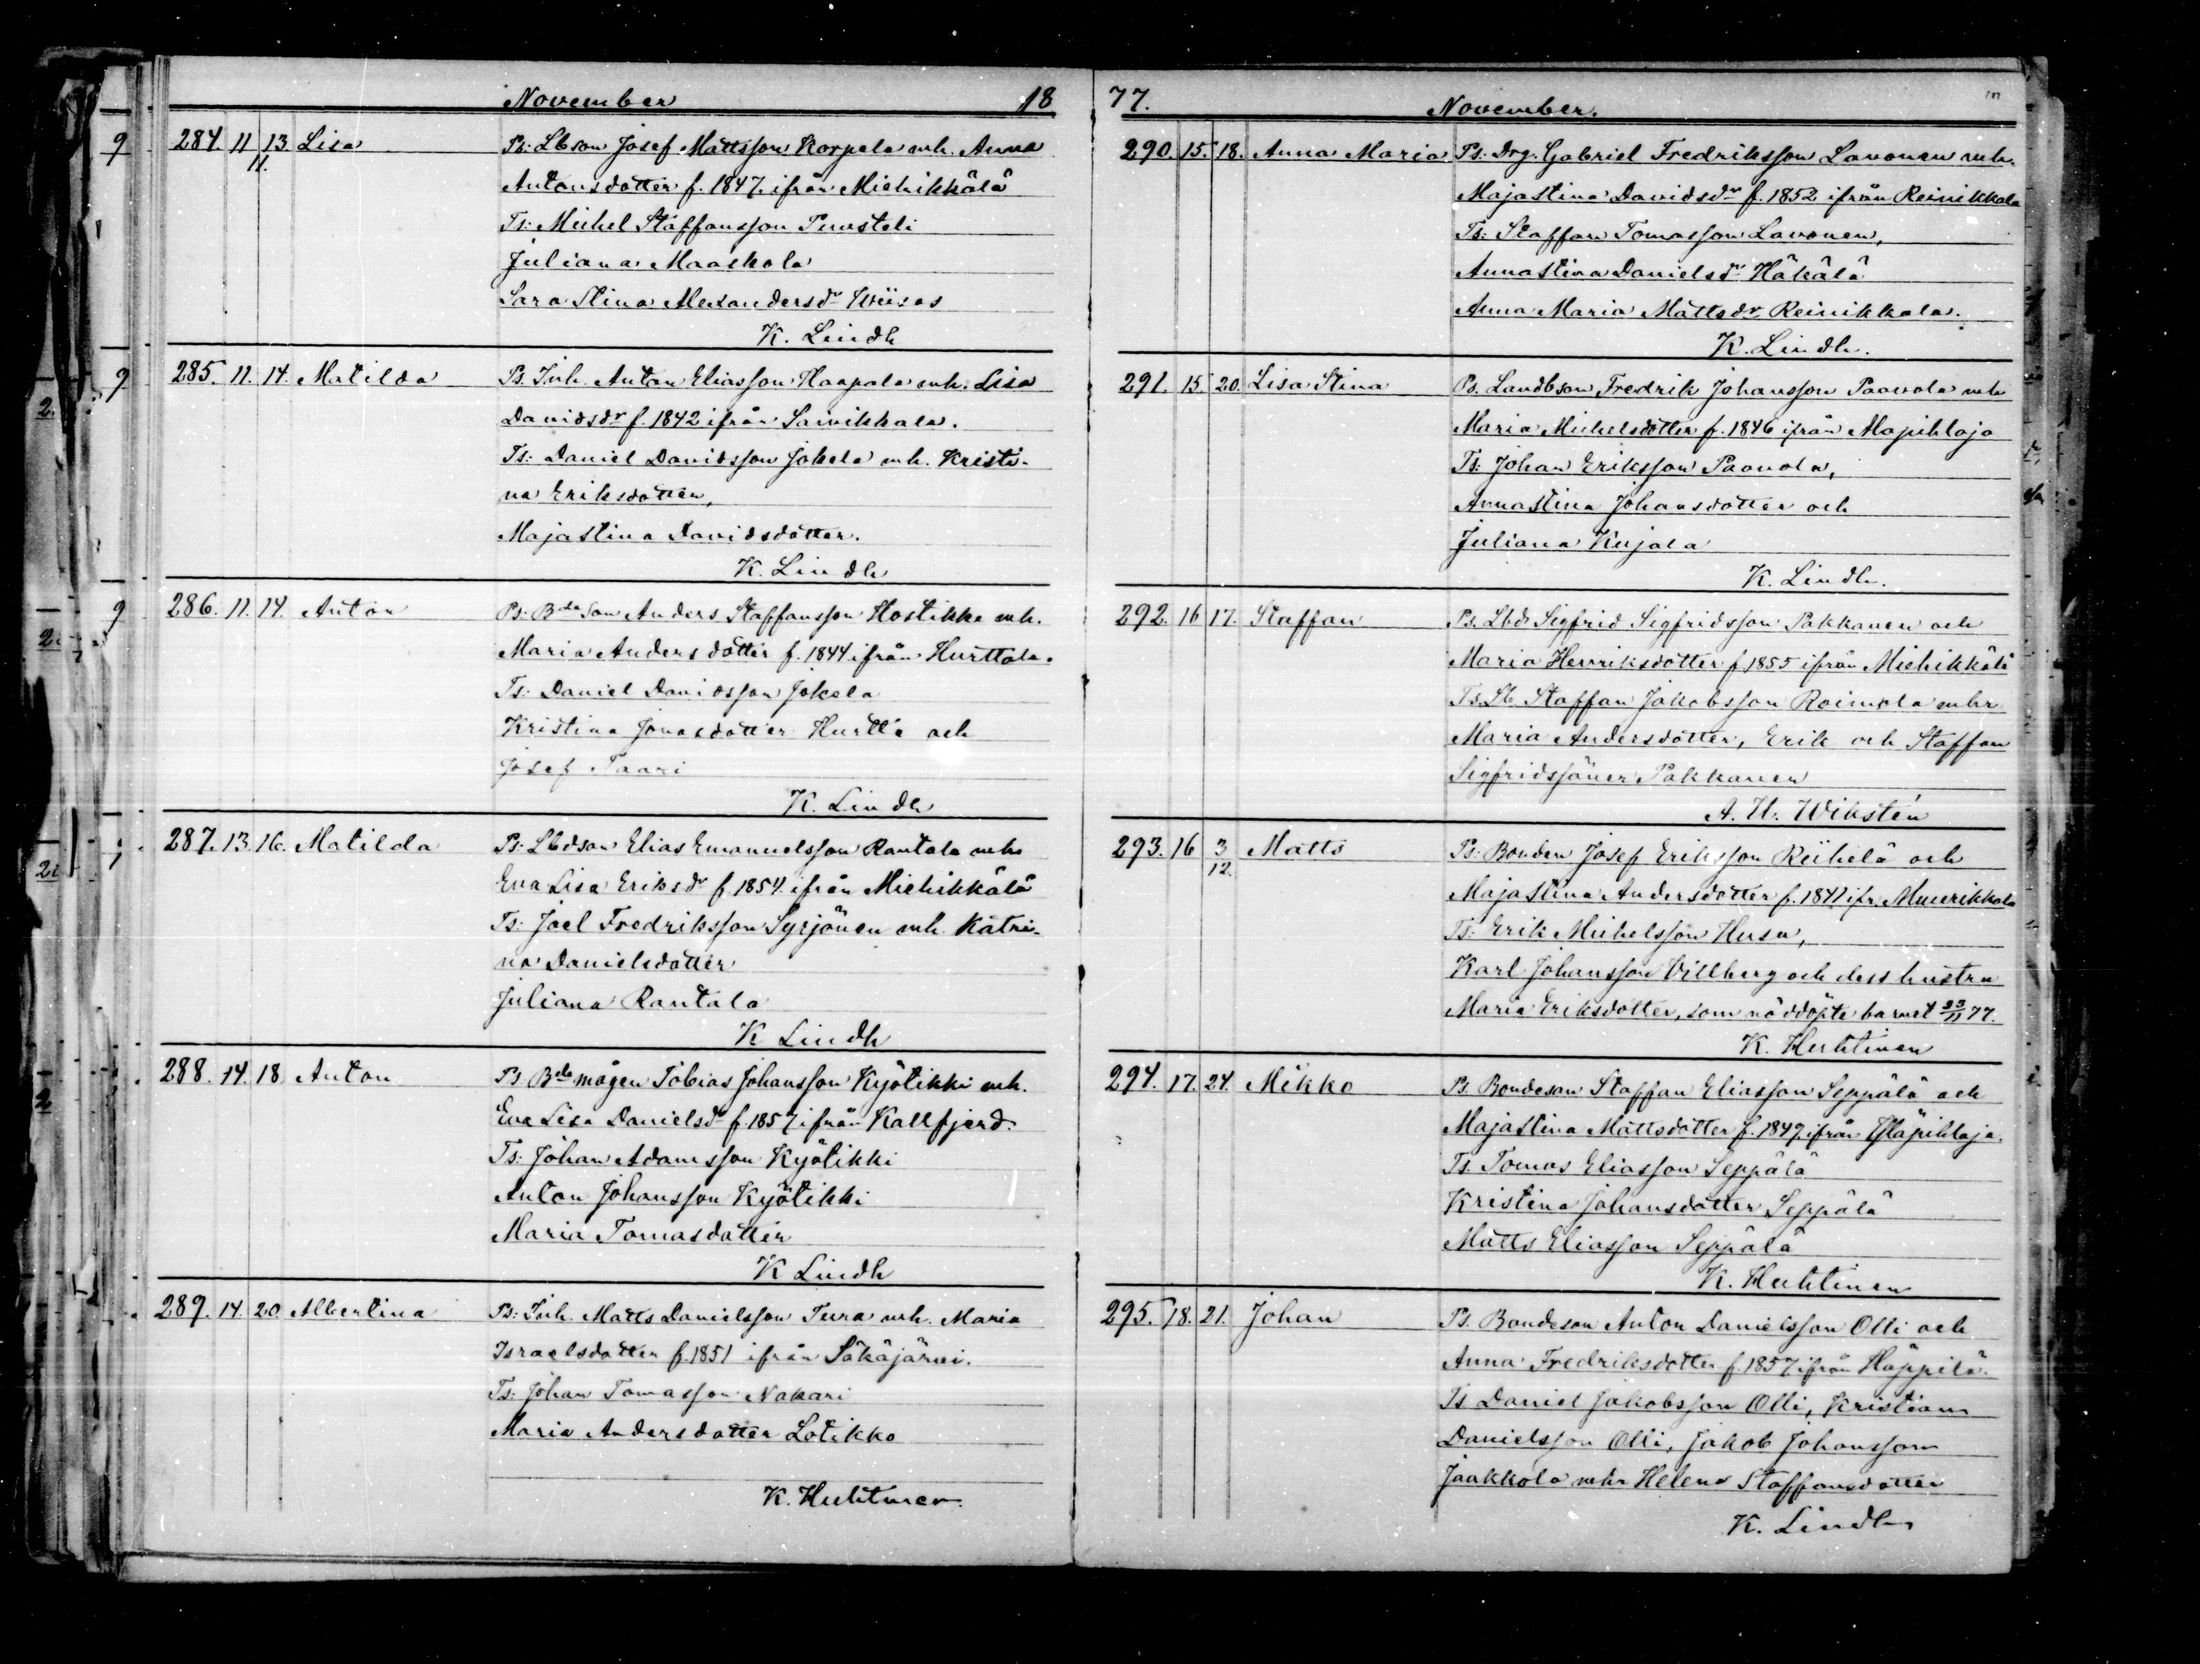 November 18
284. 11 13. Lisa Ps: Lbson Josef Mattsson Korpela mh. Anna
11. Antonsdotter f. 1847. ifrån Miehikkälä
Ts: Michel Staffansson Pursteli
Juliana Maaskola
Sara Stina Alexandersdr Wiisas
K. Lindh
285. 11. 14. Matilda Ps. Inh. Anton Eliasson Haapala mh. Lisa
Davidsdr f. 1842 ifrån Saivikkala.
Ts: Daniel Davidsson Jokela mh. Kristi-
na Eriksdotter,
Majastina Davidsdotter.
K. Lindh
286. 11. 14. Anton Ps: Bdeson Anders Staffansson Hostikka mh.
Maria Andersdotter f. 1844 ifrån Hurttala.
Ts: Daniel Davidsson Jokela
Kristina Jonasdotter Hurtta och
Josef Taari
K. Lindh
287. 13. 16. Matilda Ps: Lbdson Elias Emanuelsson Rantala mh
Eva Lisa Eriksdr f. 1854. ifrån Miehikkälä
Ts: Joel Fredriksson Syrjönen mh. Katri-
na Danielsdotter
Juliana Rantala
K Lindh
288. 14. 18. Anton Ps Bdemågen Tobias Johansson Kyötikki mh.
Eva Lisa Danielsdr f. 1857 ifrån Kallfjerd.
Ts: Johan Adamsson Kyötikki
Anton Johansson Kyötikki
Maria Tomasdotter
K Lindh
289. 14. 20. Albertina Ps: Inh. Matts Danielsson Tura mh. Maria
Israelsdotter f. 1851 ifrån Säkäjärvi.
Ts: Johan Tomasson Nakari
Maria Andersdotter Lotikko
K. Huhtinen
77. November.
290. 15. 18. Anna Maria Ps: Drg. Gabriel Fredriksson Lavonen mh.
Majastina Davidsdr f. 1852 ifrån Reinikkala
Ts: Staffan Tomasson Lavonen,
Annastina Danielsdr Häkälä
Anna Maria Mattsdr Reinikkala.
K. Lindh.
291. 15. 20. Lisa Stina Ps. Landbson Fredrik Johansson Paavola mh
Maria Michelsdotter f. 1846 ifrån Mapihlaja
Ts: Johan Eriksson Paavola,
Annastina Johansdotter och
Juliana Kujala
K. Lindh.
292. 16 17. Staffan Ps. Lbd. Sigfrid Sigfridsson Pakkanen och
Maria Henriksdotter f 1855 ifrån Miehikkälä
Ts. Lb. Staffan Jakobsson Roimola mhr
Maria Andersdotter, Erik och Staffan
Sigfridssöner Pakkanen
A. U. Wikstén
293. 16 3 Matts Ps: Bonden Josef Eriksson Reihelä och
12. Majastina Andersdotter f. 1841 ifr. Muurikkala
Ts: Erik Michelsson Husu,
Karl Johansson Villberg och dess hustru
Maria Eriksdotter, som nöddöpte barnet 23/11 77.
K. Huhtinen
294. 17. 24. Mikko Ps. Bondeson Staffan Eliasson Seppälä och
Majastina Mattsdotter f. 1849. ifrån Yläpihlaja.
Ts. Tomas Eliasson Seppälä
Kristina Johansdotter Seppälä
Matts Eliasson Seppälä
K. Huhtinen
295. 18. 21. Johan Ps. Bondeson Anton Danielsson Olli och
Anna Fredriksdotter f. 1857 ifrån Häppilä.
Ts Daniel Jakobsson Olli, Kristian
Danielsson Olli, Jakob Johansson
Jaakkola mhr Helena Staffansdotter
K. Lindh